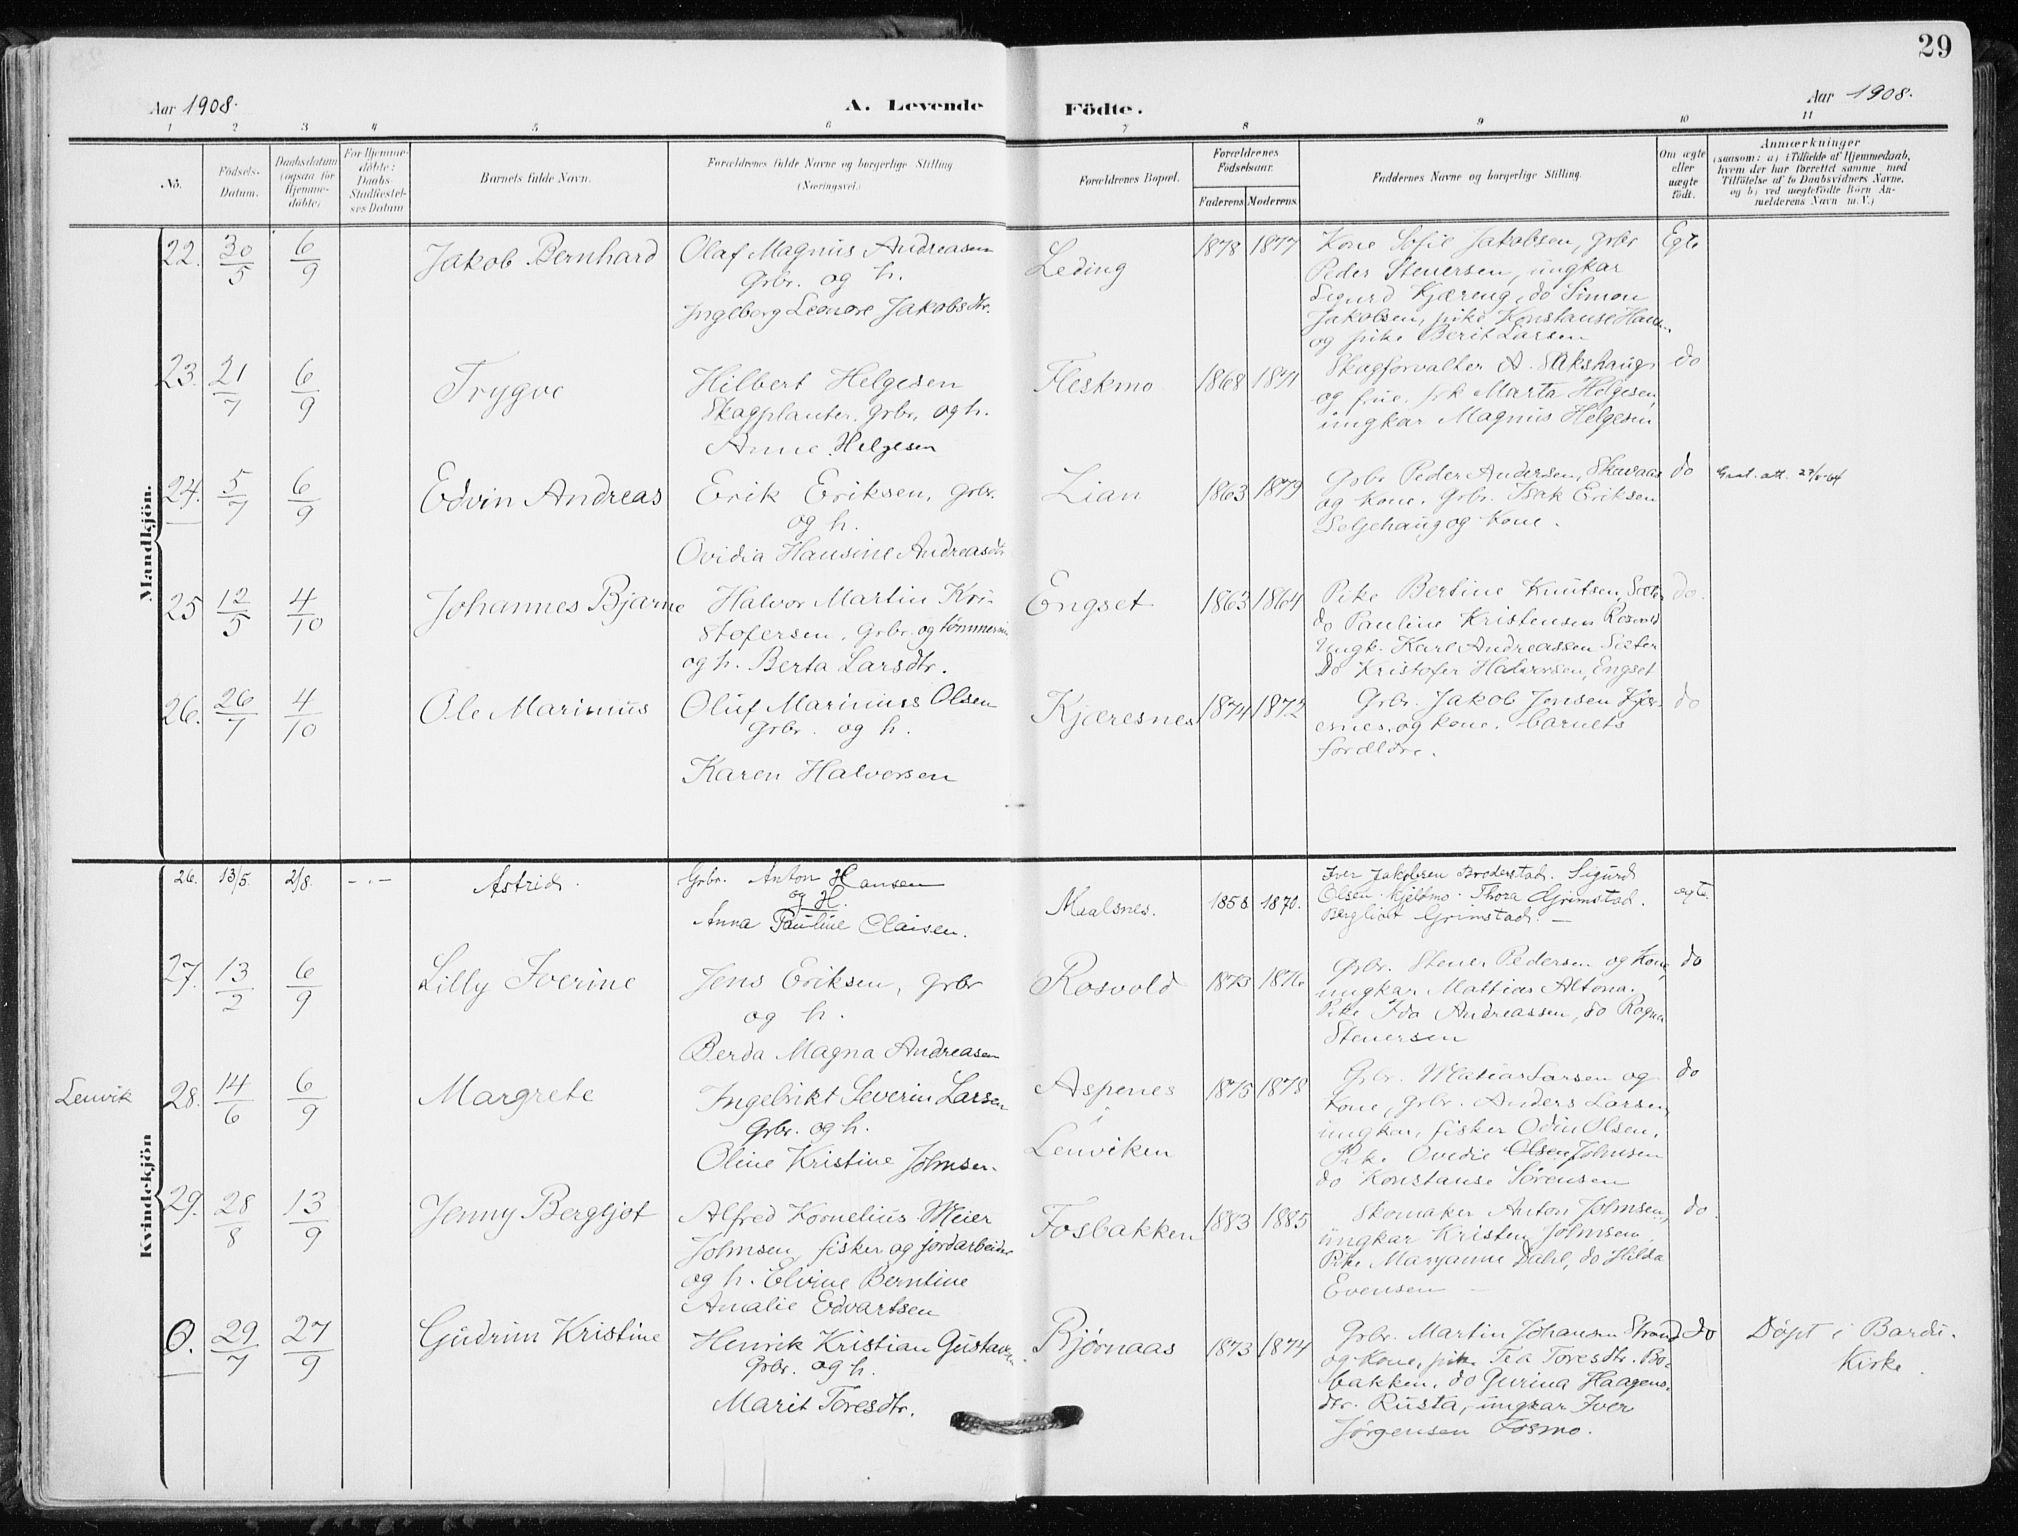 29
Aar 1908.
A. Levende Födte.
Aar 1908.
1 2 3 4 5 6 7 8 9 10 11
No.
Födsels-Datum.
Daabsdatum (ogsaa for Hjemme-döbte)
For Hjemme-döbte: Daabs-Stadfæstel-ses Datum
Barnets fulde Navn.
Forældrenes fulde Navne og borgerlige Stilling
(Næringsvei.)
Forældrenes Bopæl.
Forældrenes Födselsaar.
Faderens Moderens
Faddernes Navne og borgerlige Stilling.
Om ægte eller uægte födt.
Anmærkninger
(saasom: a) i Tilfælde af Hjemmedaab,
hvem der har forrettet samme, med
Tilföielse af to Daabsvidners Navne,
og b) ved uægtefödte Börn An-
melderens Navn m. V.)
Mandkjön.
22. 30/5 6/9 Jakob Bernhard
Olaf Magnus Andreasen
Grbr. og h.
Ingeborg Leonore Jakobsdtr.
Leding 1878 1877
Kone Sofie Jakobsen, grbr
Peder Steuersen, ungkar
Sigurd Kjæreng, do Simon
Jakobsen, pike Konstanse
og pike Berit Larsen
Egte
23. 21/7 6/9 Trygve
Hilbert Helgesen
Skogplanter, grbr. og h.
Anne Helgesen
Fleskmo 1868 1871
Skogforvalter A. Sakshaug
og frue, frk Marta Helgesen,
ungkar Magnus Helgesen
do
24. 5/7 6/9 Edvin Andreas
Erik Eriksen, grbr.
og h.
Ovidia Hansine Andreasdtr
Lian 1863 1879
Grbr Peder Andersen, Skavaas
og Kone, Grbr. Isak Eriksen
Seljehaug og Kone.
do
25 12/5 4/10 Johannes Bjarne
Halvor Martin Kri-
stofersen, Grbr. og
og h. Berta Larsdtr.
Engset 1863 1864
Pike Bertine Knutsen,
do Pauline Kristensen Rosvold
Ungk. Karl Andreassen Sæter
Do Kristofer Halvorsen, Engset
do.
26. 26/7 4/10 Ole Marinius
Oluf Marinius Olsen
grbr. og h.
Karen Halvorsen
Kjæresnes 1874 1872
Grbr. Jakob Jonsen Kjær-
esnes. og kone. barnets
forældre.
do
Kvindekjön
26. 13/5. 2/8. -.- Astrid.
Grbr. Anton Hansen
og H.
Anna Pauline Claisen.
Maalsnes. 1858 1870.
Iver Jakobsen Broderstad. Sigurd
Olsen Kjeldmo. Thora Grimstad.
Bergliot Grimstad. —
egte
27. 13/2 6/9 Lilly Iverine
Jens Eriksen, grbr
og h.
Berda Magna Andreasen
Rosvold 1873 1876
Grbr. Steuer Pedersen og Kone,
ungkar Mattias Altona.
Pike Ida Andreassen, do Ragna
Steuersen
do
Lenvik
28. 14/6 6/9 Margrete
Ingebrikt Severin Larsen
Grbr. og h.
Oline Kristine Johnsen.
Aspenes
i
Lenviken
1875 1878
Grbr. Matias Larsen og
Kone, grbr. Anders Larsen,
ungkar, fisker Odin Olsen,
Pike Ovedie Olsen Johnsen
do Konstanse Sørensen
do
29. 28/8 13/9 Jenny Bergljot
Alfred Kornelius Meier
Johnsen, fisker og jordarbeider
og h. Elvine Berntine
Amalie Edvartsen
Fosbakken 1883 1885
Skomaker Anton Johnsen,
ungkar Kristen Johnsen.
Pike Maryanne Dahl, do Hilda
Evensen —
do
0. 29/7 27/9 Gudrun Kristine
Henrik Kristian Gustavsen
Grbr. og h.
Marit Toresdtr.
Bjørnaas 1873 1874
Grbr. Martin Johansen Strand
og Kone, pike Tea Toresdtr. Bo-
bakken, do Gurina Haagens-
dtr. Rusta, ungkar Iver
Jørgensen Fosmo.
do
Døpt i Bardu
Kirke.